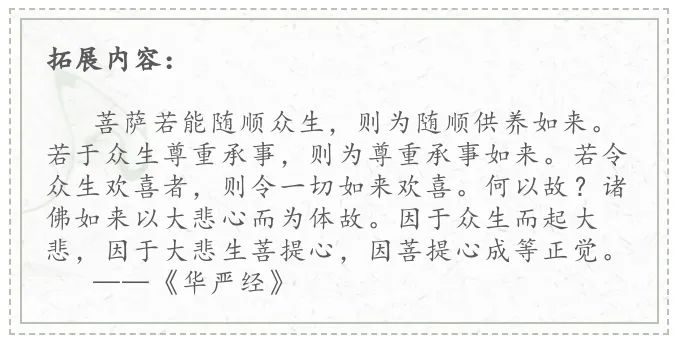 拓展内容：
菩萨若能随顺众生，则为随顺供养如来。
若于众生尊重承事，则为尊重承事如来。若令
众生欢喜者，则令一切如来欢喜。何以故？诸
佛如来以大悲心而为体故。因于众生而起大
悲，因于大悲生菩提心，因菩提心成等正觉。
——《华严经》